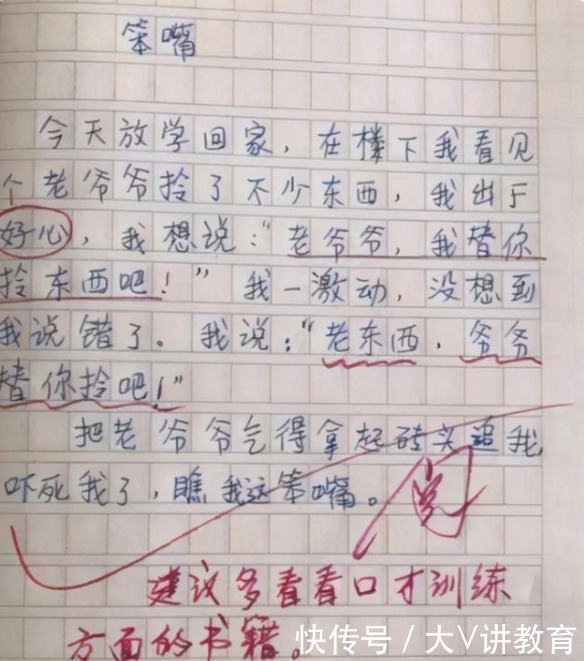 笨嘴
今天放学回家，在楼下我看见
个老爷爷拎了不少东西，我出于
好心，我想说："老爷爷，我替你
拎东西吧！"我一激动，没想到
我说错了。我说："老东西，爷爷
替你拎吧！"
把老爷爷气得拿起砖头追我，
吓死我了，瞧我这笨嘴。
阅
建议多看看口才训练
方面的书籍。
快传号／大V讲教育